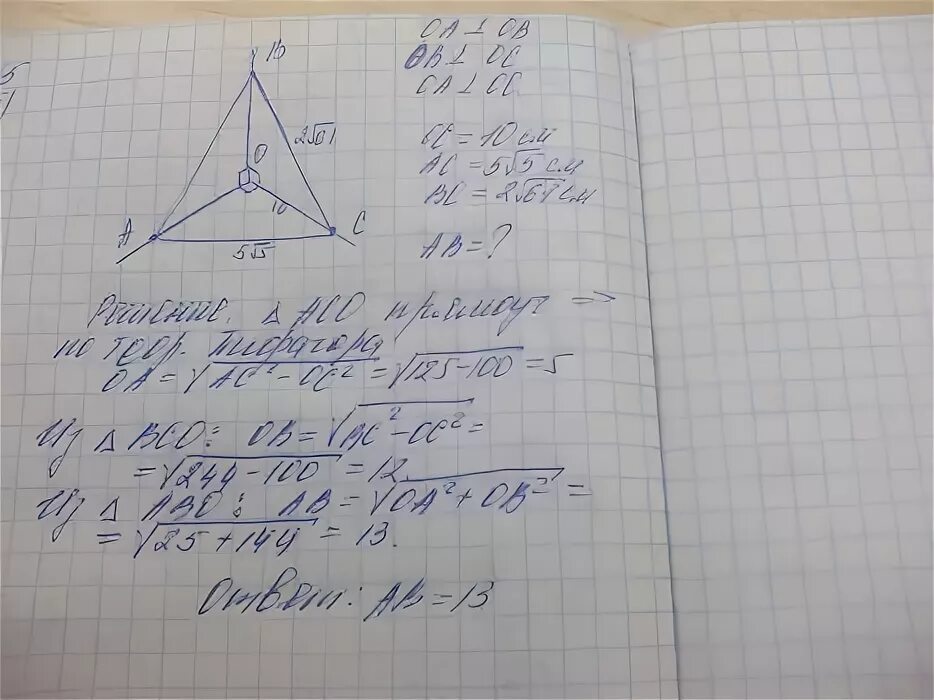 OA ⊥ OB
OB ⊥ OC
OA ⊥ OC
OC = 10 см
AC = 5√5 см
BC = 2√61 см
AB = ?
B
2√61
O
10
A
C
5√5
Решение. △ ACO прямоуг =>
по теор. Пифагора
OA = √AC² - OC² = √125-100 = 5
Из △ BCO: OB = √BC² - OC² =
= √244 - 100 = 12
Из △ ABO: AB = √OA² + OB² =
= √25 + 144 = 13.
Ответ: AB = 13